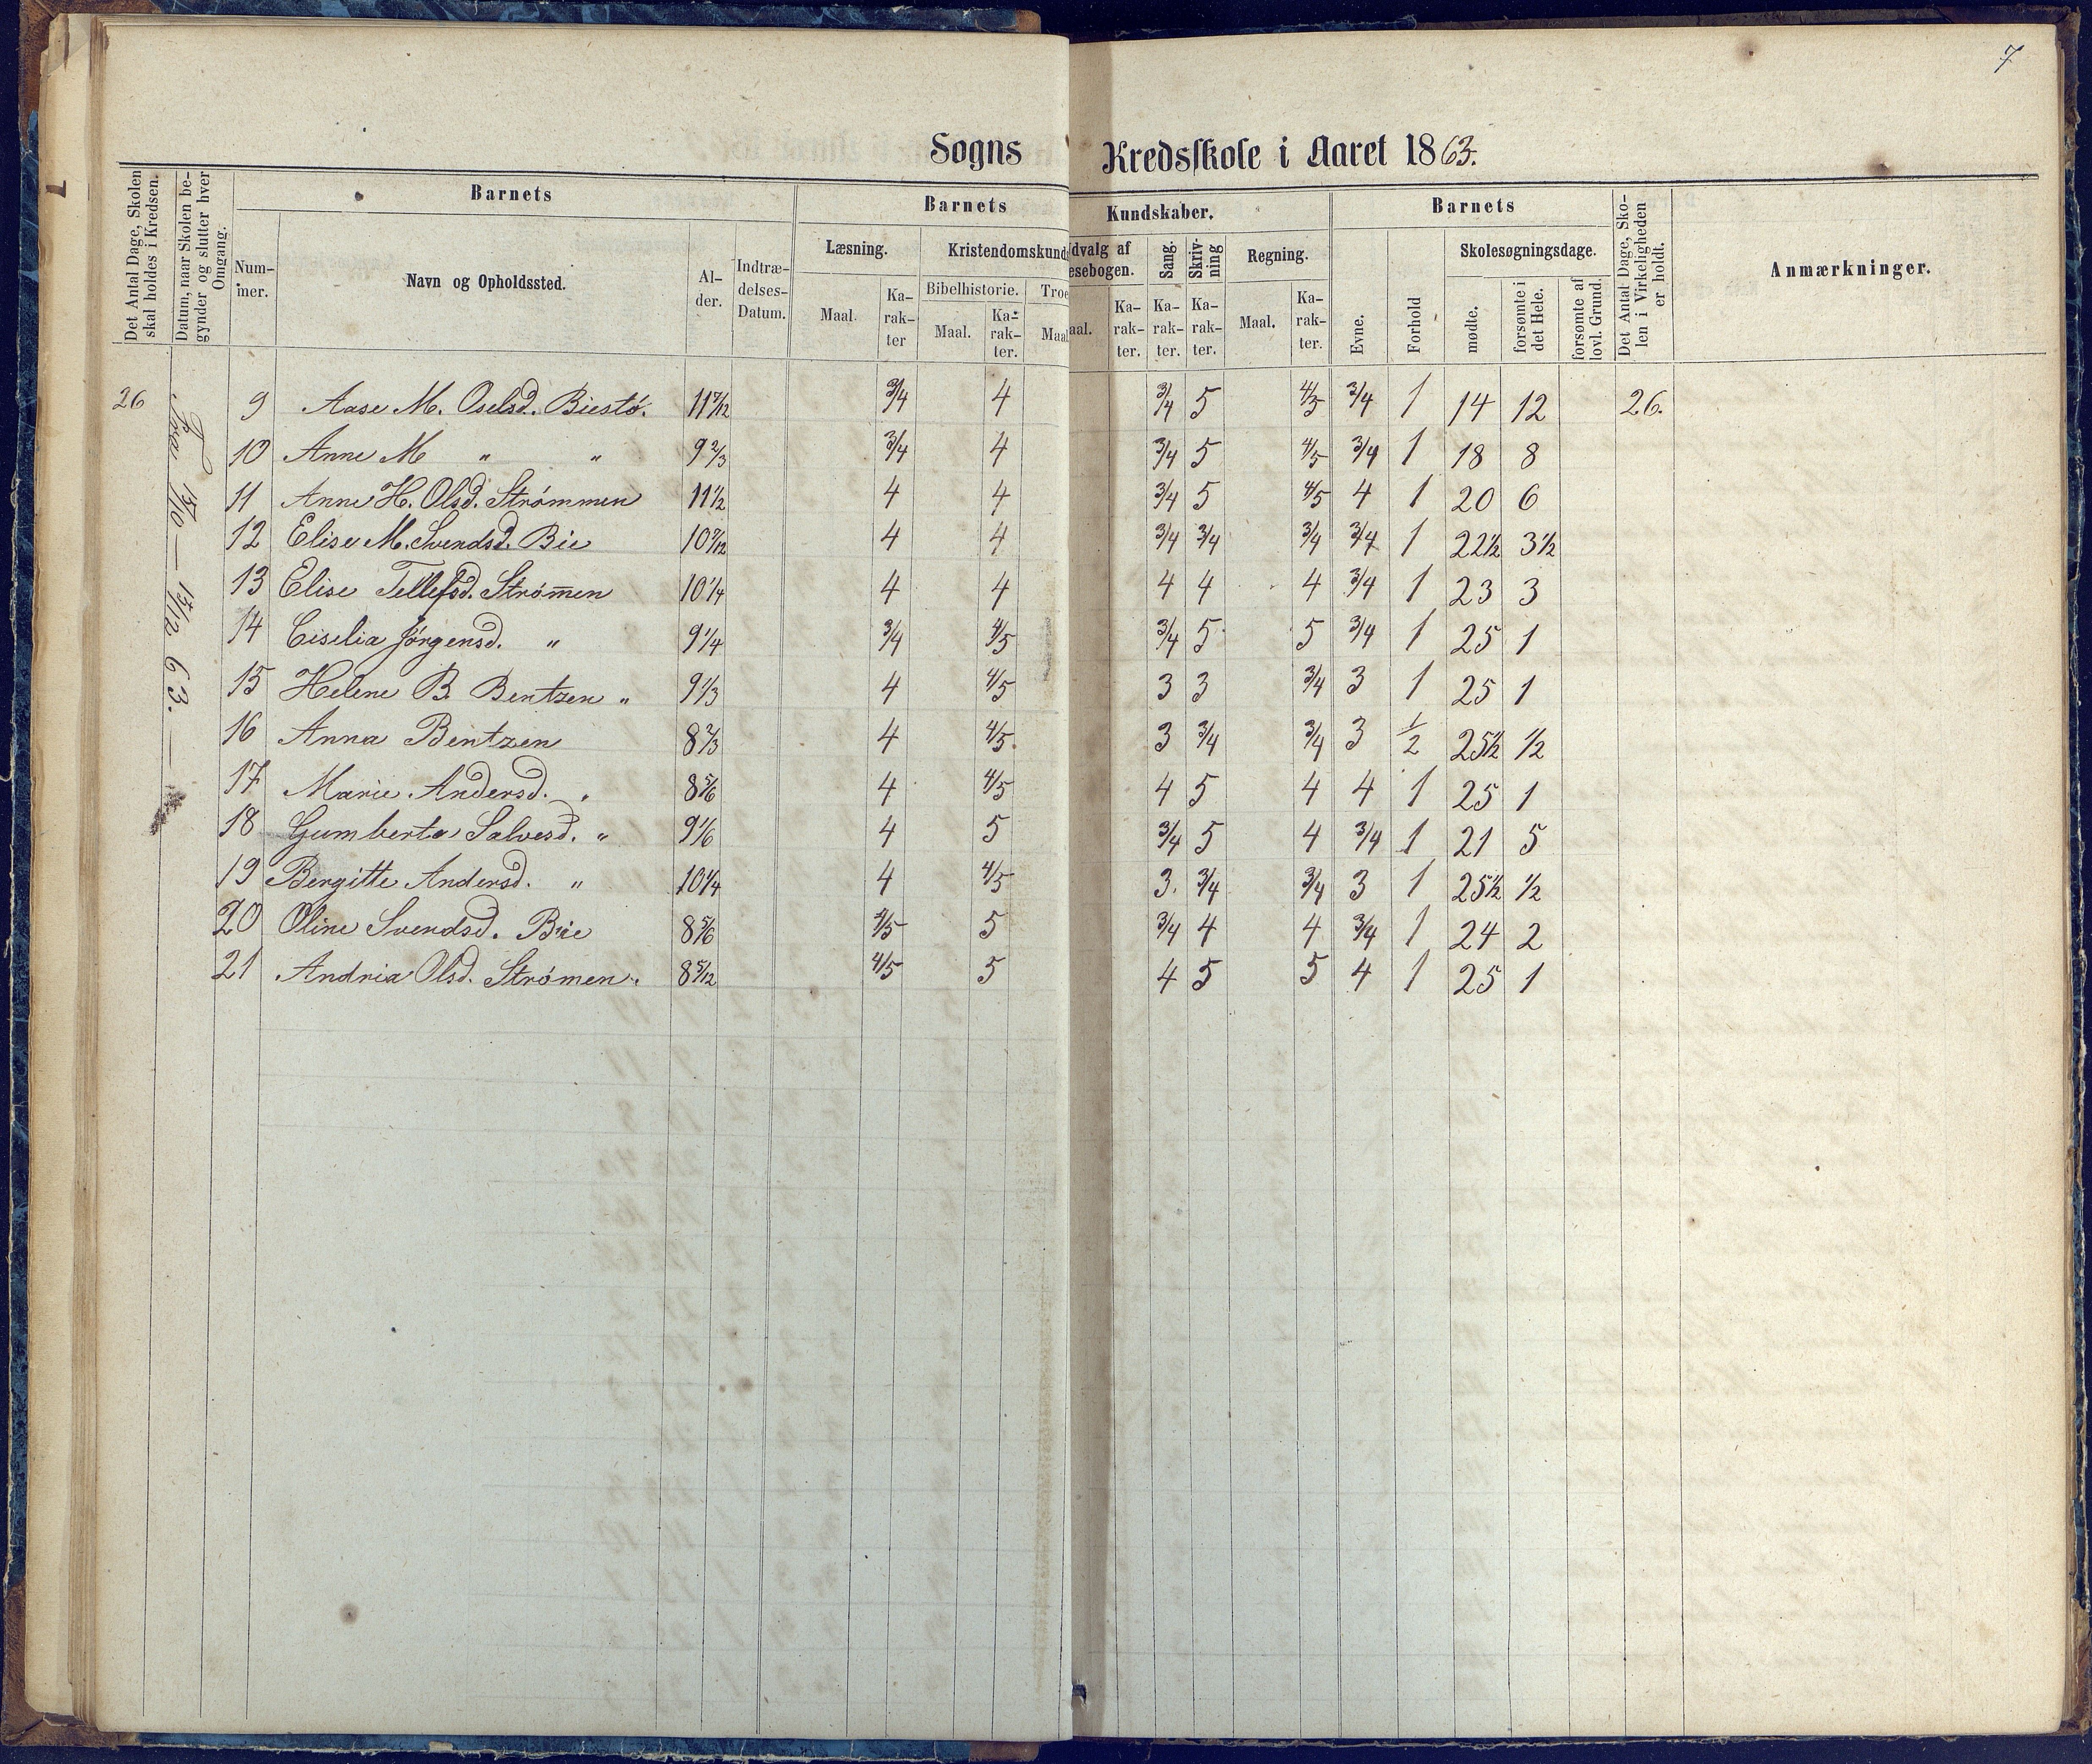 7
Sogns Kredsskole i Aaret 1863.
Det Antal Dage, Skolen skal holdes i Kredsen.
Datum, naar Skolen begynder og slutter hver Omgang.
Barnets
Nummer.
Navn og Opholdssted.
Alder.
Indtrædelses-Datum.
Barnets Kundskaber.
Læsning.
Maal.
Karakter
Kristendomskund
Bibelhistorie.
Maal.
Karakter.
Troe
Maal
dvalg af
esebogen.
aal.
Karakter.
Sang.
Karakter.
Skrivning
Karakter.
Regning.
Maal.
Karakter.
Barnets
Evne.
Forhold
Skolesøgningsdage.
mødte.
forsømte i det Hele.
forsømte af lovl. Grund.
Det Antal Dage, Skolen i Virkeligheden er holdt.
Anmærkninger.
26 9 Aase M. Oselsd. Biestø. 11 7/12 3/4 4 3/4 5 4/5 3/4 1 14 12 26.
10 Anne M " " 9 2/3 3/4 4 3/4 5 4/5 3/4 1 18 8
11 Anne H. Olsd. Strømmen 11 1/2 4 4 3/4 5 4/5 4 1 20 6
12 Elise M. Svendsd. Bie 10 7/12 4 4 3/4 3/4 3/4 3/4 1 22 1/2 3 1/2
13 Elise Tellefsd. Strøm̅en 10 1/4 4 4 4 4 4 3/4 1 23 3
14 Ciselia Jørgensd. " 9 1/4 3/4 4/5 3/4 5 5 3/4 1 25 1
15 Helene B. Bentzen " 9 1/3 4 4/5 3 3 3/4 3 1 25 1
16 Anna Bentzen 8 2/3 4 4/5 3 3/4 3/4 3 1/2 25 1/2 1/2
17 Marie Andersd. " 8 5/6 4 4/5 4 5 4 4 1 25 1
18 Gumberta Salvesd. " 9 1/6 4 5 3/4 5 4 3/4 1 21 5
19 Bergitte Andersd. " 10 1/4 4 4/5 3 3/4 3/4 3 1 25 1/2 1/2
20 Oline Svendsd. Bie 8 5/6 4/5 5 3/4 4 4 3/4 1 24 2
21 Andria Olsd. Strømen. 8 5/12 4/5 5 4 5 5 4 1 25 1
Fra 15/10 — 15/12 63. —